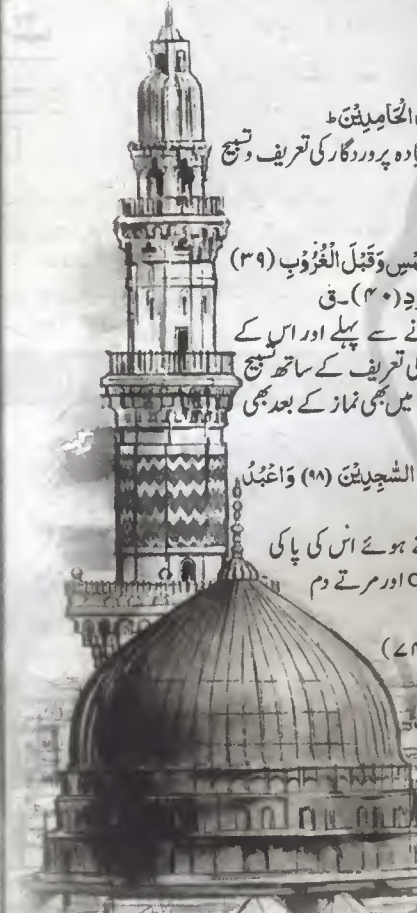 الْحَامِدِيْنَ ط
یادہ پروردگار کی تعریف و تسبیح
مْسِ وَقَبْلَ الْغُرُوْبِ (۳۹)
وْدِ (۴۰)۔ ق
نے سے پہلے اور اس کے
کی تعریف کے ساتھ تسبیح
میں بھی نماز کے بعد بھی
السّٰجِدِيْنَ (۹۸) وَاعْبُدْ
ہوئے اس کی پاکی
اور مرتے دم